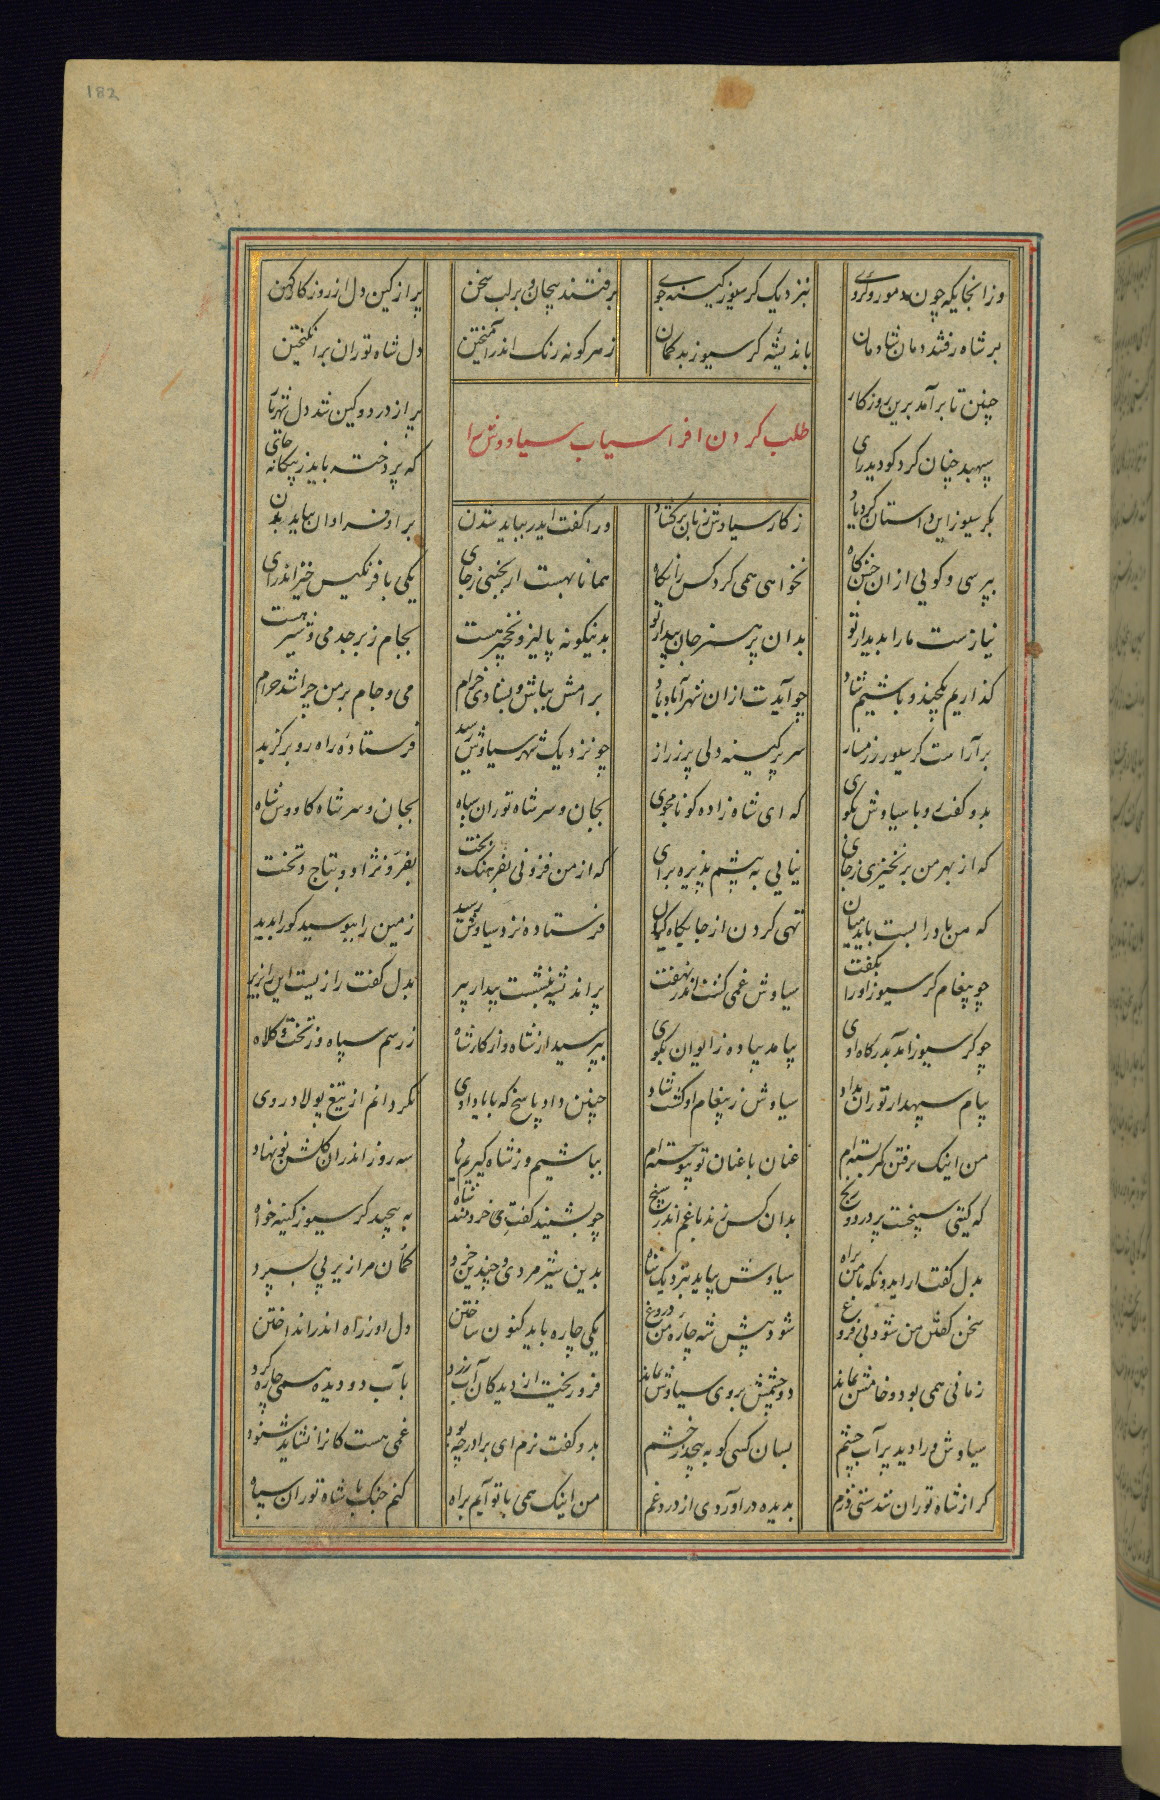 182
وزانجایکه چون دمور و گروی بنزدیک گرسیوز کینه جوی برفتند پیچان و بر لب سخن پر از کین دل از روزگار کهن
بر شاه رفتند دمان شادمان باندیشه گرسیوز بدگمان ز هر گونه رنگ اندر آمیختن دل شاه توران برانگیختن
چنین تا برآمد برین روزگار پر از درد و کین شد دل شهریار
طلب کردن افراسیاب سیاووش را
سپهبد چنان کرد کو دید رای که پردخته باید ز بیگانه جای
بگرسیوز این داستان کرد یاد ز کار سیاوش زبان برگشاد ورا گفت ایدر بباید شدن بر او فراوان بباید بدن
بپرسی و گویی ازان جشن گاه نخواهی همی کرد کس را نگاه همانا بهست ار بجنبی ز جای یکی با فرنگیس خیز اندر آی
نیازست ما را بدیدار تو بدان پر هنر جان بیدار تو بدنیکونه پالیز و نخچیر هست بجام زبرجد می و شیر هست
گذاریم یکچند و باشیم شاد چو آیدت ازان شهر آباد یاد برامش بباش و بشادی خرام می و جام بر من چرا شد حرام
برآراست گرسیوز رزمساز سر پر کینه دلی پر ز راز چو نزدیک شهر سیاوش رسید فرستادهٔ راه رو برگزید
بدو گفت رو با سیاوش بگوی که ای شاه زاده گو نامجوی بجان و سر شاه توران سپاه بجان و سر شاه کاووس شاه
که از بهر من برنخیزی ز جای نیایی به پیشم پذیره برای که از من فزونی بفرهنگ و بخت بفر و نژاد و بتاج و تخت
که من باد را بست باید میان تهی کردن از جایگاه کیان فرستاده نزد سیاوش رسید زمین را ببوسید کو را بدید
چو پیغام گرسیوز او را بگفت سیاوش غمی گشت اندر نهفت پر اندیشه بنشست بیدار پیر بدل گفت رازیست این را بزیر
چو گرسیوز آمد بدرگاه اوی پیامد پیاده ز ایوان بکوی بپرسید از شاه و از کار شاه ز رسم سپاه و ز تخت و کلاه
پیام سپهدار توران بداد سیاوش ز پیغام او گشت شاد چنین داد پاسخ که با یاد اوی نگردانم از تیغ پولاد روی
من اینک برفتن کمر بسته‌ام عنان با عنان تو پیوسته‌ام بباشیم وز شاه گیریم یاد سه روز اندران گلشن نو نهاد
که گیتی سپنجست پر درد و رنج بدان کس زند با غم اندر سپنج چو بشنید گفت خردمند شاه به پیچید گرسیوز کینه خواه
بدل گفت ار ایدونکه با من براه سیاوش بیاید بنزدیک شاه بدین شیر مردی و چندین خرد کمان مرا زیر پی بسپرد
سخن گفتن من شود بی فروغ شود پیش شه چاره من دروغ یکی چاره باید کنون ساختن دل او ز راه اندر انداختن
زمانی همی بود و خامش بماند دو چشمش بروی سیاوش بماند فرو ریخت از دیدگان آب زرد بآب دو دیده همی چاره کرد
سیاوش ورا دید پر آب چشم بسان کسی کو به پیچد ز خشم بدو گفت نرم ای برادر چه بود غمی هست کانرا نشاید شنود
گر از شاه توران شدستی دژم بدیده در آوردی از درد غم من اینک همی با تو آیم براه کنم جنگ با شاه توران سپاه